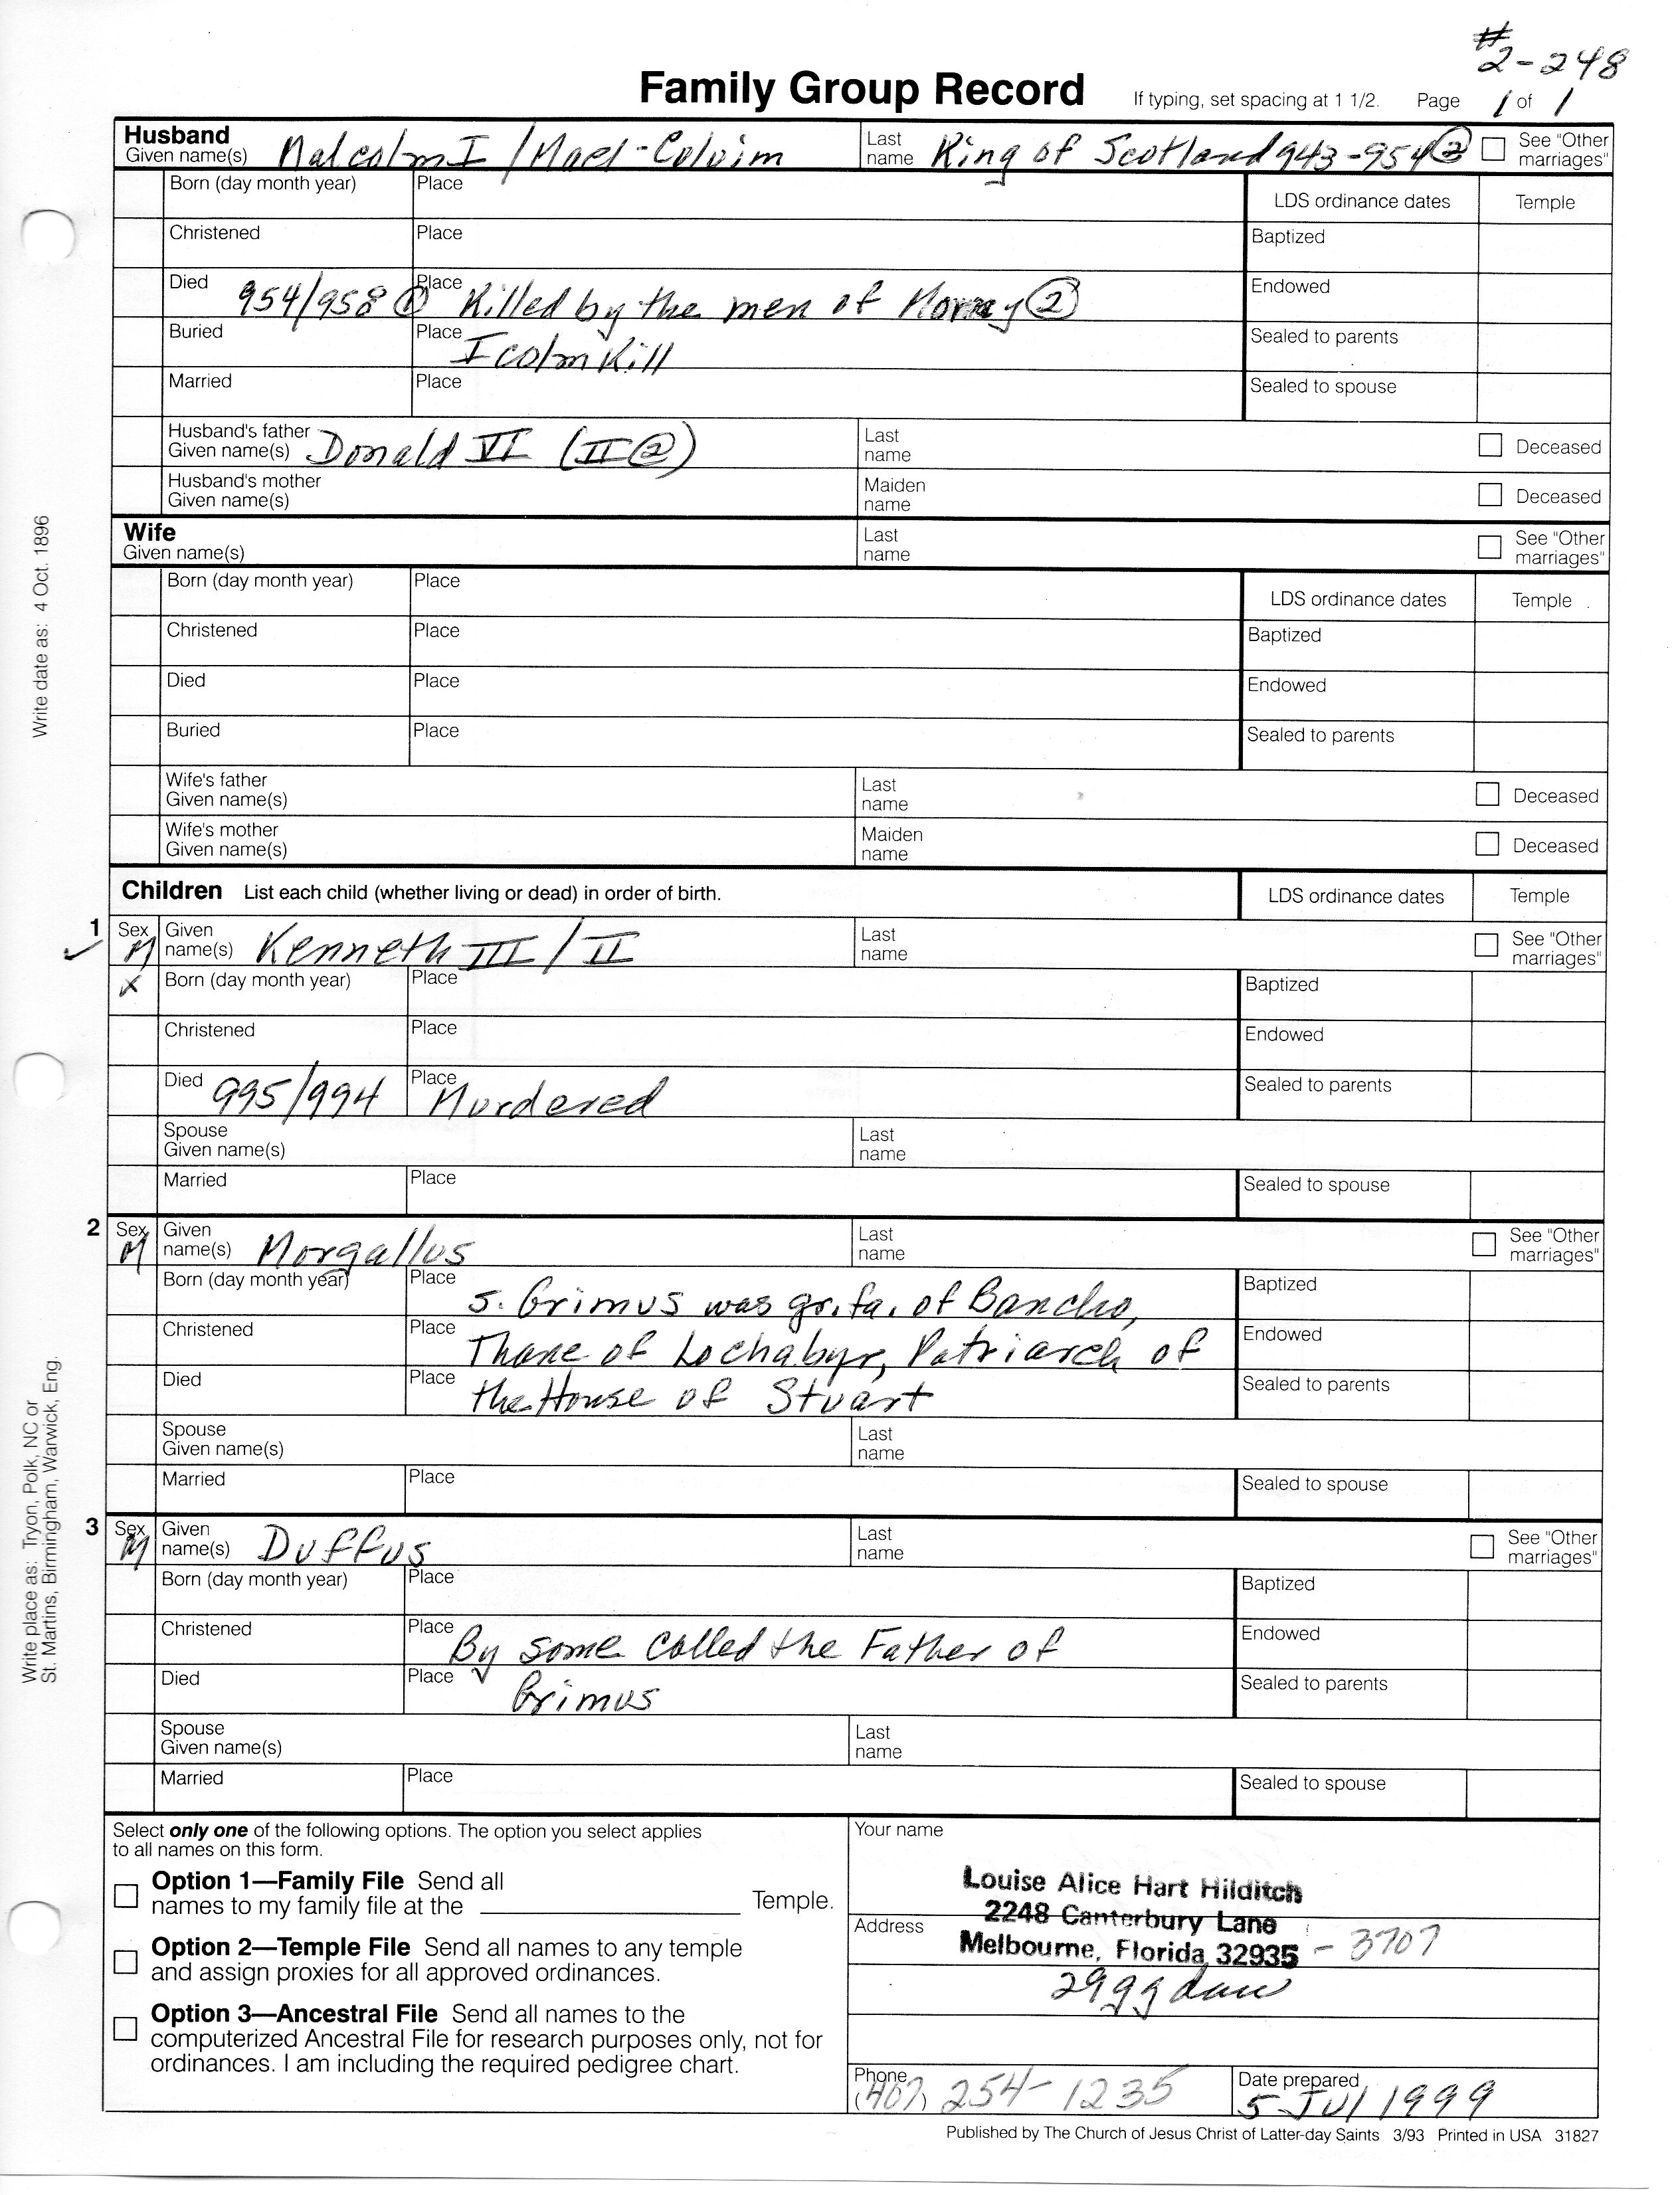 #2-248
Family Group Record If typing, set spacing at 1 1/2. Page 1 of 1
Husband
Given name(s) Malcolm I / Mael-Colvim Last name King of Scotland 943-954 ② See "Other marriages"
Born (day month year) Place LDS ordinance dates Temple
Christened Place Baptized
Died 954/958 ① Place Killed by the men of Moray ② Endowed
Buried Place Icolmkill Sealed to parents
Married Place Sealed to spouse
Husband's father Given name(s) Donald VI (II ②) Last name Deceased
Husband's mother Given name(s) Maiden name Deceased
Wife
Given name(s) Last name See "Other marriages"
Born (day month year) Place LDS ordinance dates Temple
Christened Place Baptized
Died Place Endowed
Buried Place Sealed to parents
Wife's father Given name(s) Last name Deceased
Wife's mother Given name(s) Maiden name Deceased
Children List each child (whether living or dead) in order of birth. LDS ordinance dates Temple
1 Sex M Given name(s) Kenneth III / II Last name See "Other marriages"
X Born (day month year) Place Baptized
Christened Place Endowed
Died 995/994 Place Murdered Sealed to parents
Spouse Given name(s) Last name
Married Place Sealed to spouse
2 Sex M Given name(s) Morgallus Last name See "Other marriages"
Born (day month year) Place s. Grimus was gr.fa. of Bancho, Baptized
Christened Place Thane of Lochabyr, Patriarch of Endowed
Died Place the House of Stuart Sealed to parents
Spouse Given name(s) Last name
Married Place Sealed to spouse
3 Sex M Given name(s) Duffus Last name See "Other marriages"
Born (day month year) Place Baptized
Christened Place By some called the Father of Endowed
Died Place Grimus Sealed to parents
Spouse Given name(s) Last name
Married Place Sealed to spouse
Select only one of the following options. The option you select applies
to all names on this form.
Option 1—Family File Send all
names to my family file at the Temple.
Option 2—Temple File Send all names to any temple
and assign proxies for all approved ordinances.
Option 3—Ancestral File Send all names to the
computerized Ancestral File for research purposes only, not for
ordinances. I am including the required pedigree chart.
Your name
Louise Alice Hart Hilditch
2248 Canterbury Lane
Address Melbourne, Florida 32935 - 3707
29ggdau
Phone (407) 254-1235 Date prepared 5 Jul 1999
Published by The Church of Jesus Christ of Latter-day Saints 3/93 Printed in USA 31827
Write date as: 4 Oct. 1896
Write place as: Tryon, Polk, NC or
St. Martins, Birmingham, Warwick, Eng.